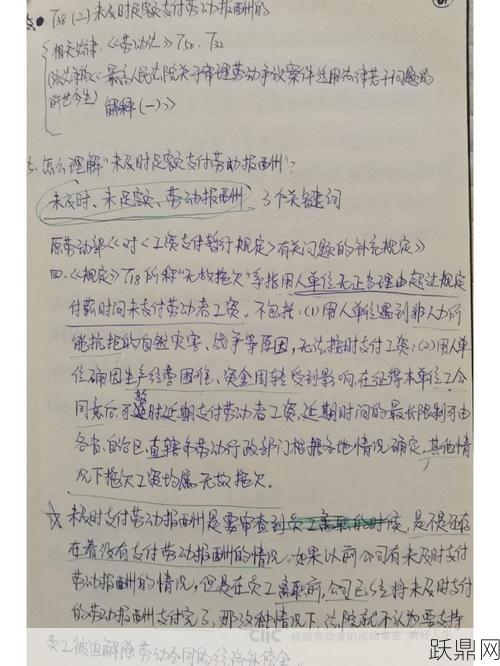 T38 (二) 未及时足额支付劳动报酬的
相关法律:《劳动法》T50、T32
《最高人民法院关于审理劳动争议案件适用法律若干问题的
解释(一)》
怎么理解"未及时足额支付劳动报酬"?
未及时、未足额、劳动报酬 3个关键词
原劳动部《对《工资支付暂行规定》有关问题的补充规定》
四.《规定》T18所称"无故拖欠"系指用人单位无正当理由超过规定
付薪时间未支付劳动者工资。不包括:(1)用人单位遇到非人力所
能抗拒的自然灾害、战争等原因,无法按时支付工资;(2)用人单
位确因生产经营困难、资金周转受到影响,在征得本单位工会
同意后,可暂时延期支付劳动者工资,延期时间的最长限制可由
各省、自治区、直辖市劳动行政部门根据各地情况确定。其他情
况下拖欠工资均属无故拖欠。
☆ 未及时支付劳动报酬是要审查到员工离职的时候,是不是还存
在着没有支付劳动报酬的情况。如果以前公司有未及时支付
劳动报酬的情况,但是在员工离职前,公司已经将未及时支付
的劳动报酬支付完了,那这种情况下,法院就不认为要支持
员工被迫解除劳动合同的经济补偿金。
跃鼎网